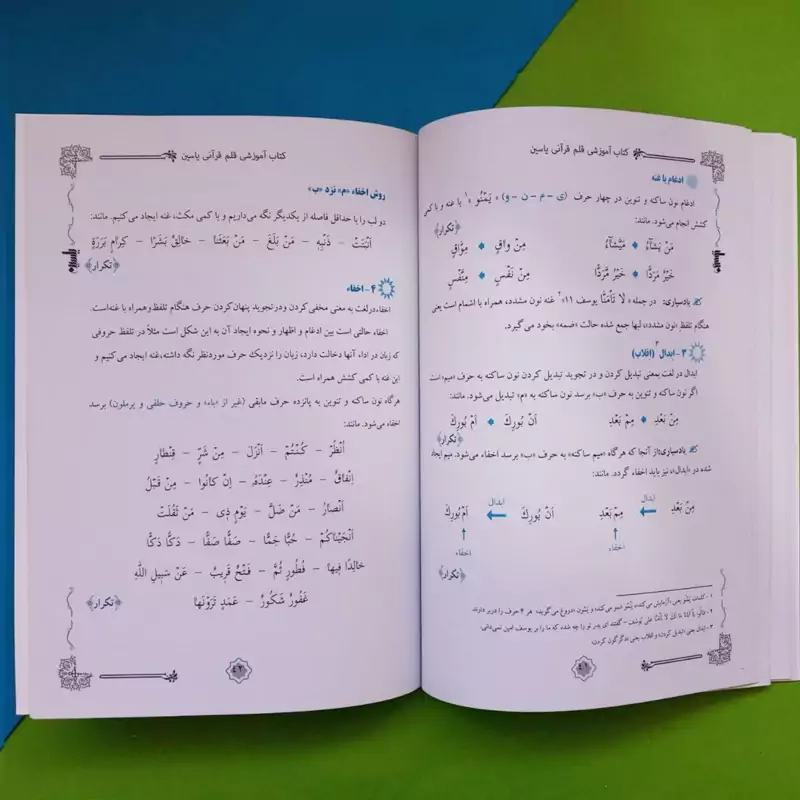 کتاب آموزشی قلم قرآنی یاسین
ادغام با غنه
ادغام نون ساکنه و تنوین در چهار حرف (ی – م – ن – و) «یَمْنُو»۱ با غنه و با کمی
کشش انجام می‌شود. مانند:
﴿تکرار﴾
مَنْ یَشآءُ مَیَّشآءُ مِنْ واقٍ مِوّاقٍ
خَیْرٌ مَرَدًّا خَیْرُ مَّرَدًّا مِنْ نَفْسٍ مِنَّفْسٍ
یادسپاری: در جمله «لا تَأمَنّا یوسف ۱۱»۲ غنه نون مشدد، همراه با اشمام است یعنی
هنگام تلفظ «نون مشدد»، لبها جمع شده حالت «ضمه» بخود می گیرد.
۳ – ابدال۳ (اقلاب)
ابدال در لغت بمعنی تبدیل کردن و در تجوید تبدیل کردن نون ساکنه به حرف «میم» است
اگر نون ساکنه و تنوین به حرف «ب» برسد نون ساکنه به «م» تبدیل می‌شود. مانند:
مِنْ بَعْدِ مِمْ بَعْدِ اَنْ بُورِكَ اَمْ بُورِكَ
﴿تکرار﴾
یادسپاری: از آنجا که هرگاه «میم ساکنه» به حرف «ب» برسد اخفاء می‌شود. میم ایجاد
شده در «ابدال»، نیز باید اخفاء گردد. مانند:
مِنْ بَعْدِ ابدال مِمْ بَعْدِ اَنْ بُورِكَ ابدال اَمْ بُورِكَ
اخفاء اخفاء
﴿تکرار﴾
۱ – کلمات یَمْنُو یعنی «آزمایش می‌کند» یُمْنُو «دروغ می‌گوید» هر ۴ حرف را دربر دارند
۲ – قالُوا یا اَبانا ما لَكَ لا تَأمَنّا عَلی یُوسُفَ – گفتند ای پدر تو را چه شده که ما را بر یوسف امین نمی‌دانی.
۳ – ابدال یعنی «تبدیل کردن» و اقلاب یعنی «دگرگون کردن»
۴۱
کتاب آموزشی قلم قرآنی یاسین
روش اخفاء «م» نزد «ب»
دو لب را با حداقل فاصله از یکدیگر نگه می‌داریم و با کمی مکث، غنه ایجاد می‌کنیم. مانند:
اَنْبَتَتْ – ذَنْبِهِ – مَنْ بَلَغَ – مَنْ بَعَثَنا – خالِقٌ بَشَرًا – کِرامٍ بَرَرَةٍ
﴿تکرار﴾
۴ – اخفاء
اخفاء در لغت به معنی مخفی کردن و در تجوید پنهان کردن حرف هنگام تلفظ و همراه با غنه است.
اخفاء حالتی است بین ادغام و اظهار و نحوه ایجاد آن به این شکل است مثلاً در تلفظ حروفی
که زبان در اداء آنها دخالت دارد، زبان را نزدیک حرف موردنظر نگه داشته، غنه ایجاد می‌کنیم و
این غنه با کمی کشش همراه است.
هرگاه نون ساکنه و تنوین به پانزده حرف مابقی (غیر از «باء» و حروف حلقی و یرملون) برسد
اخفاء می‌شود. مانند:
اُنْظُرْ – کُنْتُمْ – اَنْزَلَ – مِنْ شَرِّ – قِنْطارٍ
اِنْفاقٌ – مُنْذِرٌ – عِنْدَهُ – اِنْ کانُوا – مِنْ قَبْلُ
اَنْصارٌ – مَنْ ضَلَّ – یَوْمٍ ذی – مَنْ ثَقُلَتْ
اَنْجَیْناکُمْ – حُبًّا جَمًّا – صَفًّا صَفًّا – دَکًّا دَکًّا
خالِدًا فیها – فُطُورٍ ثُمَّ – فَتْحٌ قَریبٌ – عَنْ سَبیلِ اللهِ
غَفُورٌ شَکُورٌ – عَمَدٍ تَرَوْنَها
﴿تکرار﴾
۴۲